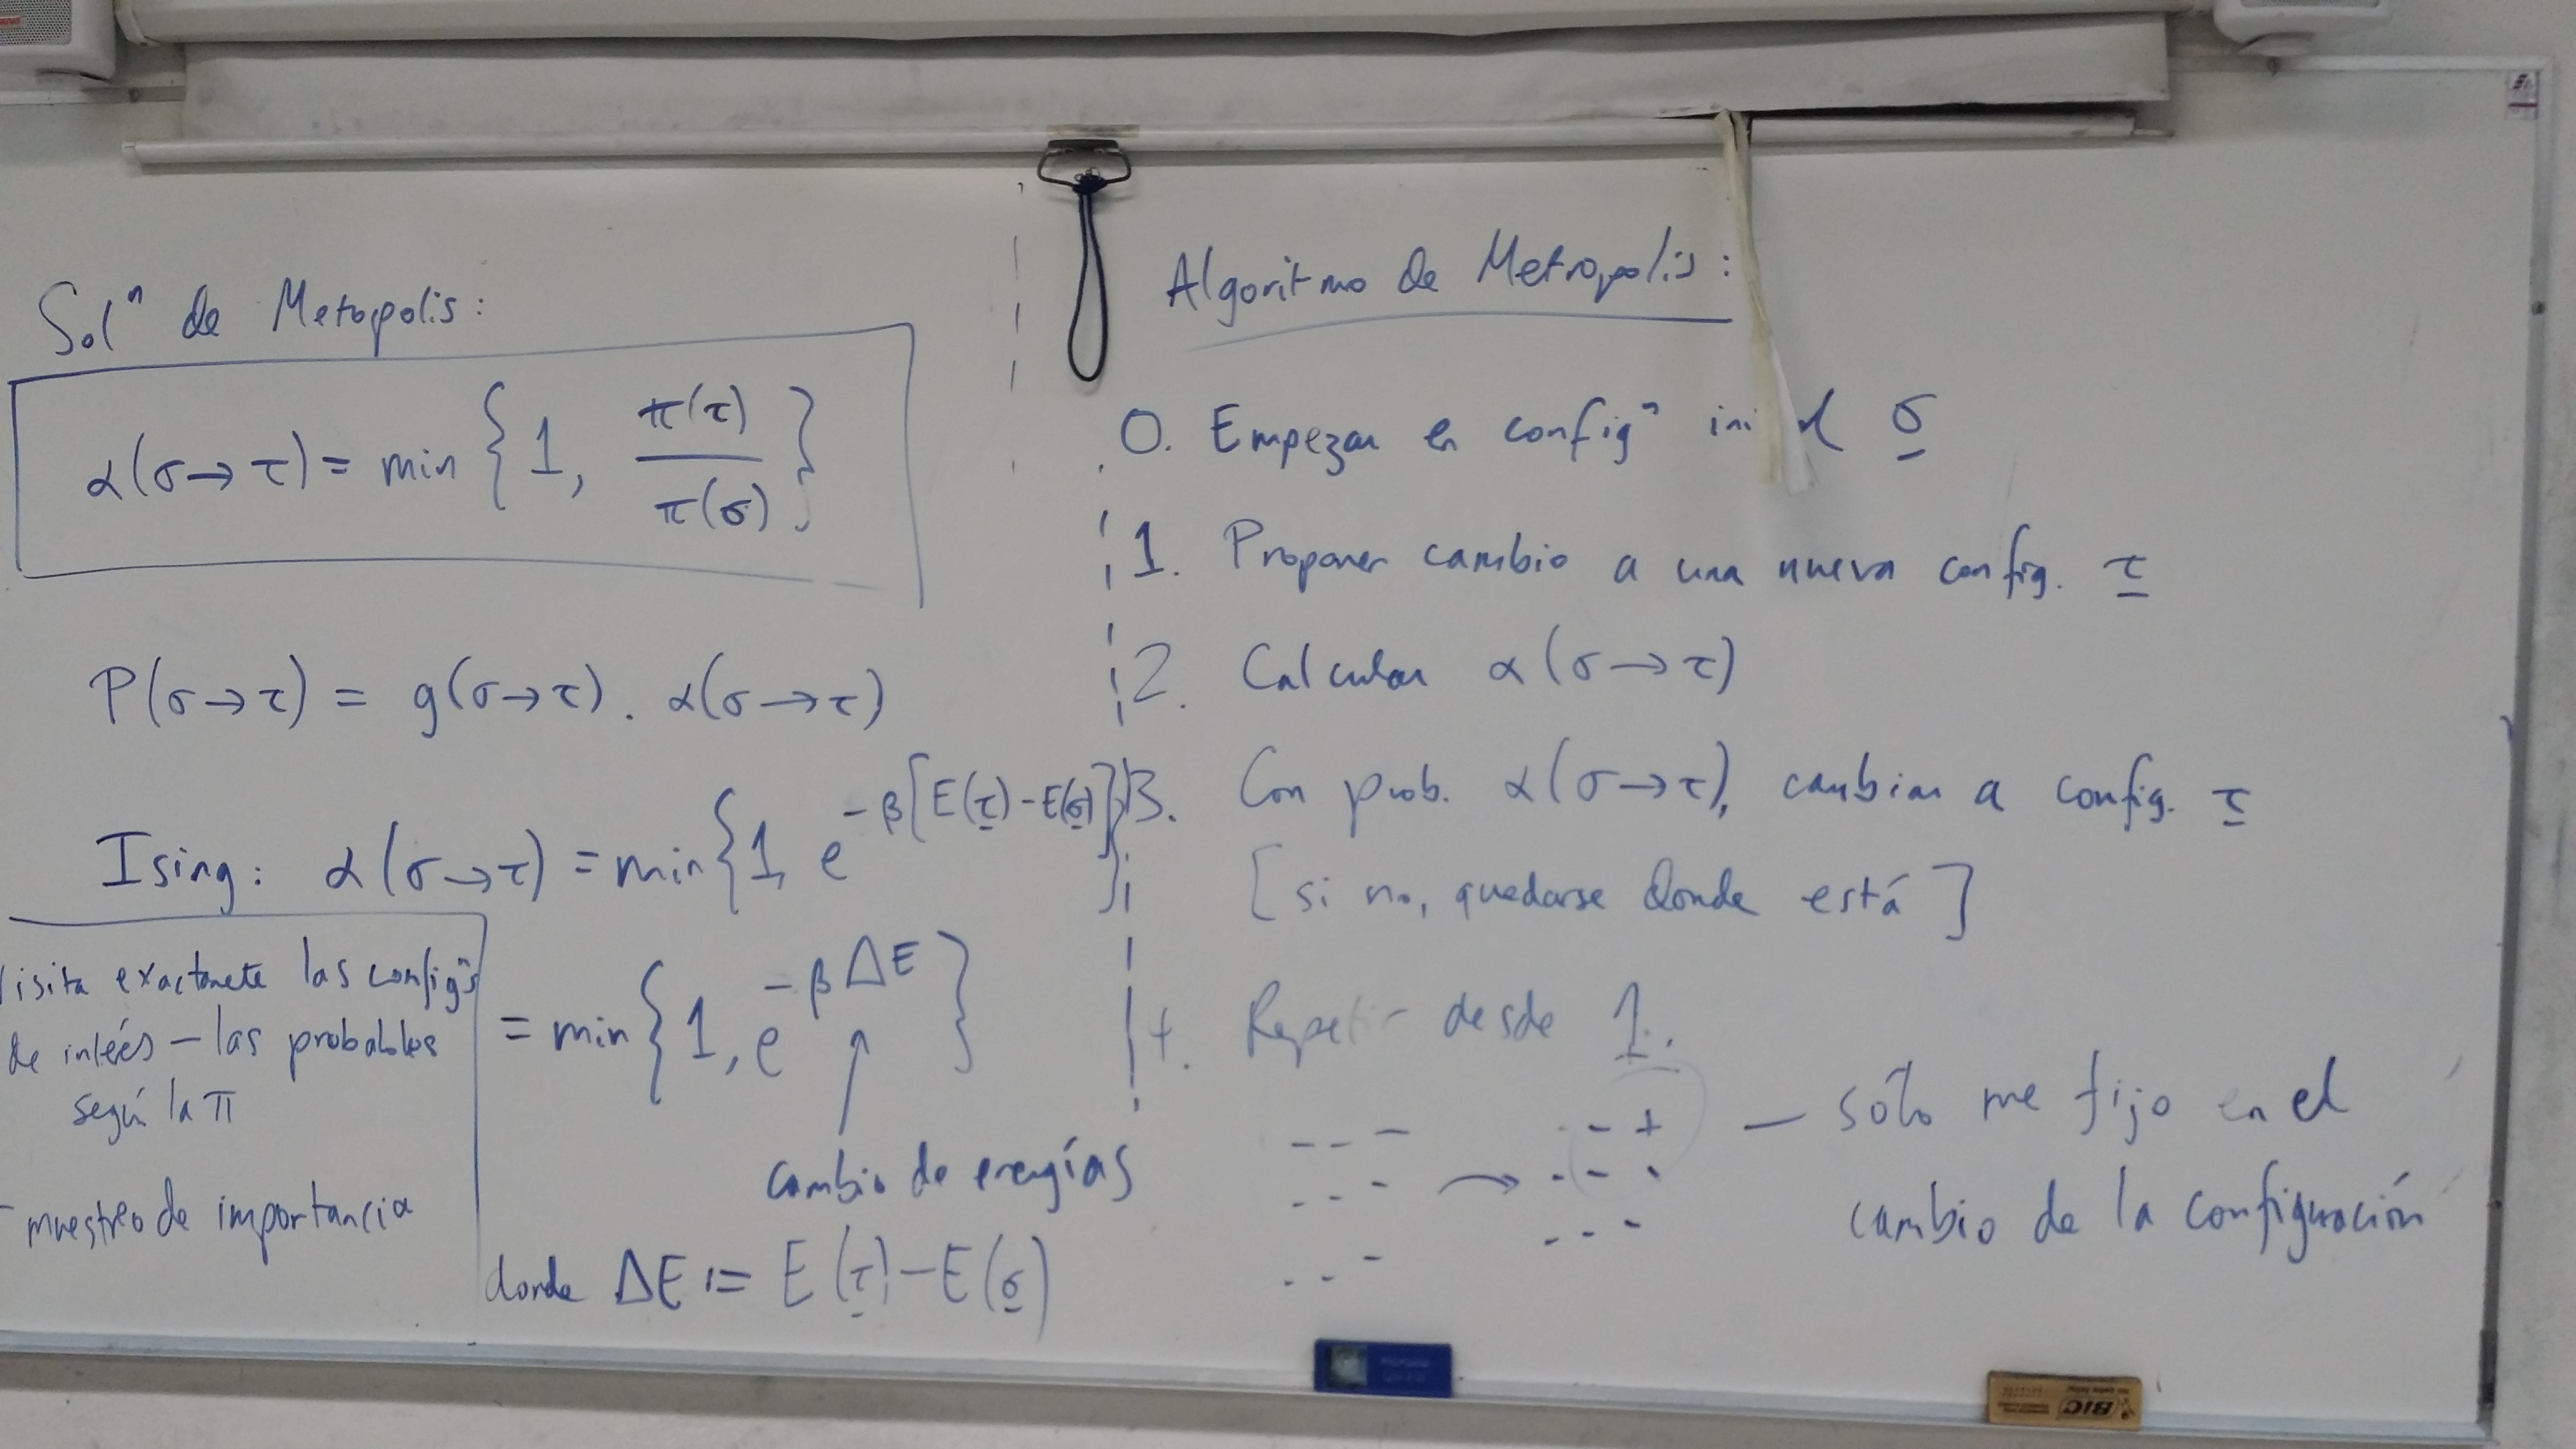 Solⁿ de Metopolis:
α(σ→τ) = min {1, π(τ)/π(σ)}
P(σ→τ) = g(σ→τ) . α(σ→τ)
Ising: α(σ→τ) = min{1, e^{-β[E(τ)-E(σ)]}}
= min{1, e^{-βΔE}}
cambio de energías
donde ΔE := E(τ) - E(σ)
isita exactamete las configⁿs
de interés – las probables
según la π
- muestreo de importancia
Algoritmo de Metropolis:
0. Empezar en configⁿ σ
1. Proponer cambio a una nueva config. τ
2. Calcular α(σ→τ)
3. Con prob. α(σ→τ), cambiar a config. τ
[si no, quedarse donde está]
Repetir desde 1.
- - -    - - +
- - -  →  - - -
- - -    - - -
— sólo me fijo en el
cambio de la configuración
BIC